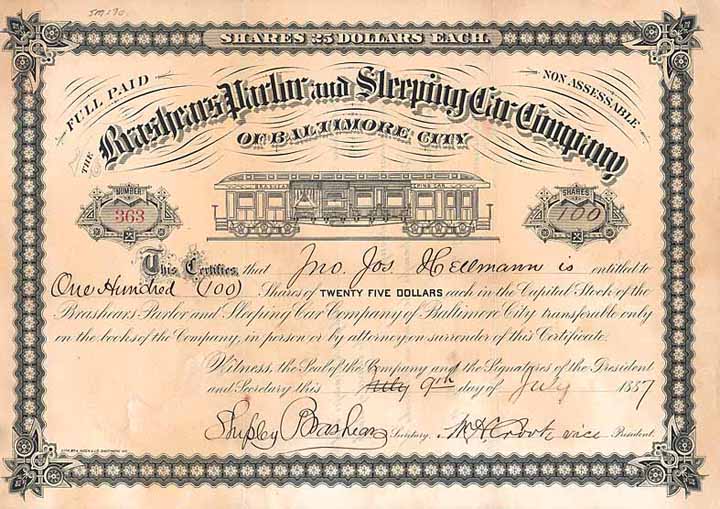 SHARES 25 DOLLARS EACH.
FULL PAID
NON ASSESSABLE
THE
Brashears Parlor and Sleeping Car Company
OF BALTIMORE CITY
NUMBER
363
SHARES
100
This Certifies that Jno. Jos. Hellmann is entitled to
One Hundred (100) Shares of TWENTY FIVE DOLLARS each in the Capital Stock of the
Brashears Parlor and Sleeping Car Company of Baltimore City transferable only
on the books of the Company, in person or by attorney on surrender of this Certificate.
Witness, the Seal of the Company and the Signatures of the President
and Secretary this July 9th day of July 1887
Shipley Brashears Secretary. W. H. Crook vice President.